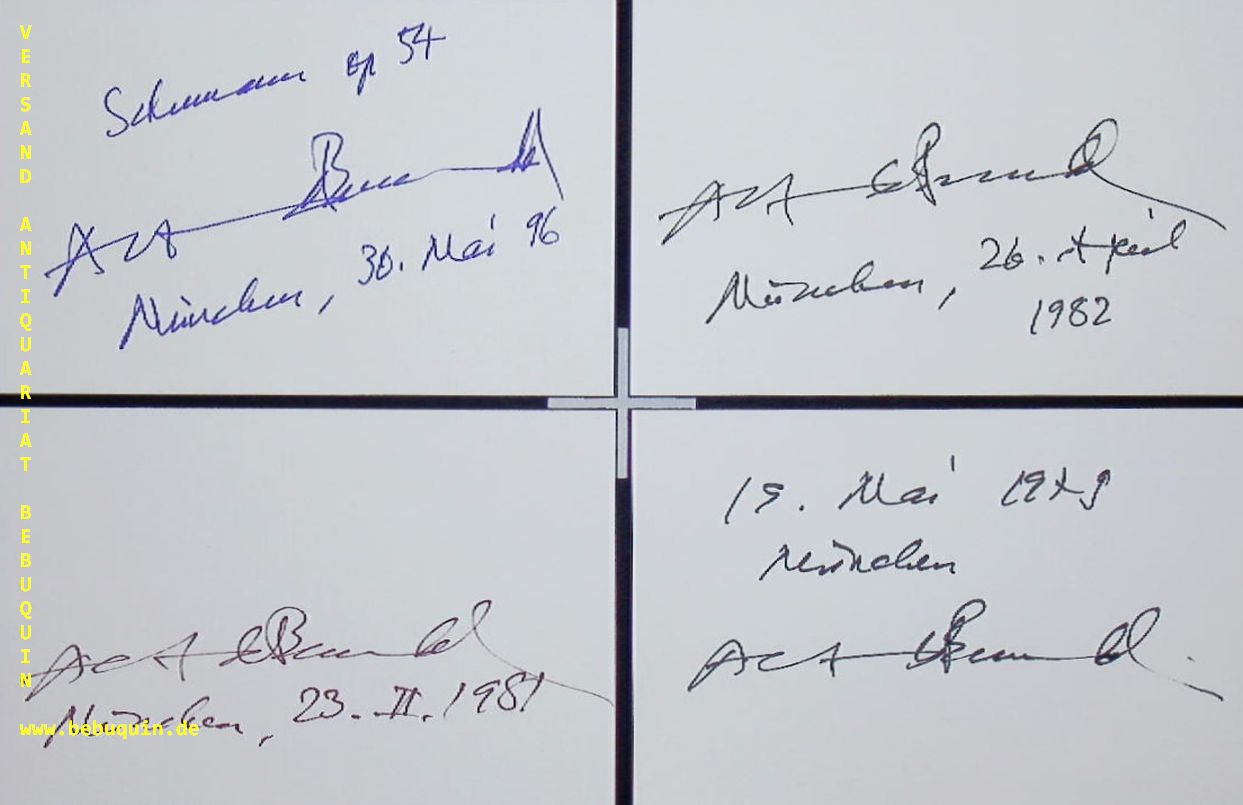 VERSAND ANTIQUARIAT BEBUQUIN
Schumann op 54
Alfred Brendel
München, 30. Mai 96
Alfred Brendel
München, 26. April
1982
Alfred Brendel
München, 23. II. 1981
www.bebuquin.de
Mai 1979
München
Alfred Brendel